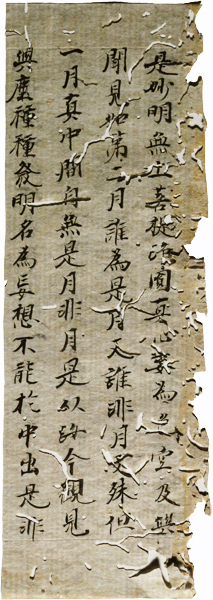 是妙明無上菩提淨圓真心妄為色空及與
聞見如第二月誰為是月又誰非月文殊但
一月真中間自無是月非月是以汝今觀見
與塵種種發明名為妄想不能於中出是非